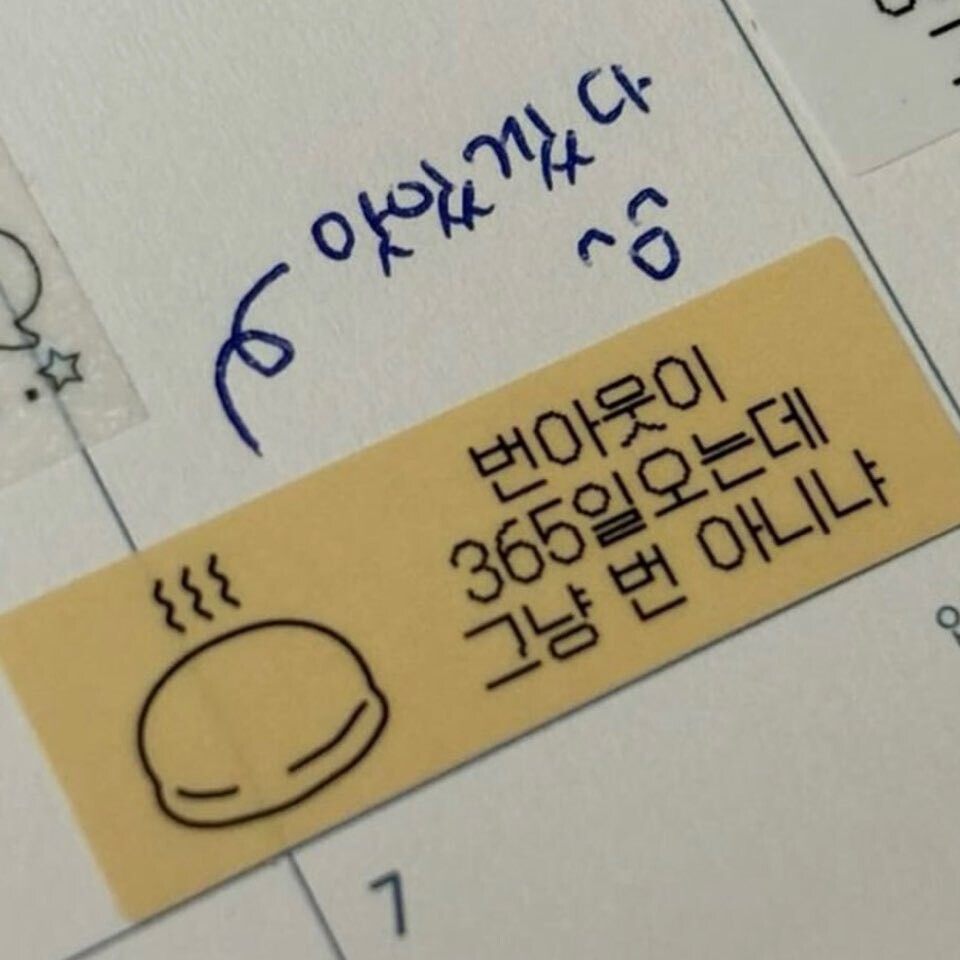 맛있겠다
^o^
번아웃이
365일오는데
그냥 번 아니냐
7